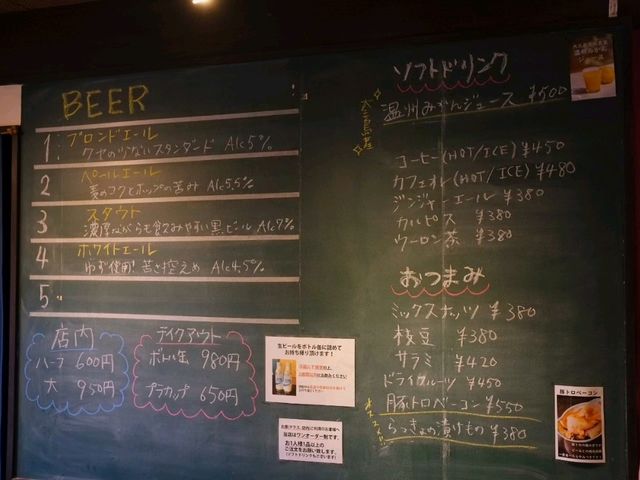 BEER
1 ブロンドエール
クセの少ないスタンダード Alc5%
2 ペールエール
麦のコクとホップの苦み Alc5.5%
3 スタウト
濃厚ながらも飲みやすい黒ビール Alc7%
4 ホワイトエール
ゆず使用!苦さ控えめ Alc4.5%
5
店内
ハーフ 600円
大 950円
テイクアウト
ボトル缶 980円
プラカップ 650円
生ビールをボトル缶に詰めて
お持ち帰り頂けます!
当店はワンオーダー制です。
お1人様1品以上の
ご注文をお願い致します。
(ソフトドリンクもございます)
ソフトドリンク
大三島産
温州みかんジュース ¥500
コーヒー(HOT/ICE) ¥450
カフェオレ(HOT/ICE) ¥480
ジンジャーエール ¥380
カルピス ¥380
ウーロン茶 ¥380
おつまみ
ミックスナッツ ¥380
枝豆 ¥380
サラミ ¥420
ドライフルーツ ¥450
オススメ!
豚トロベーコン ¥550
らっきょの漬けもの ¥380
豚トロベーコン